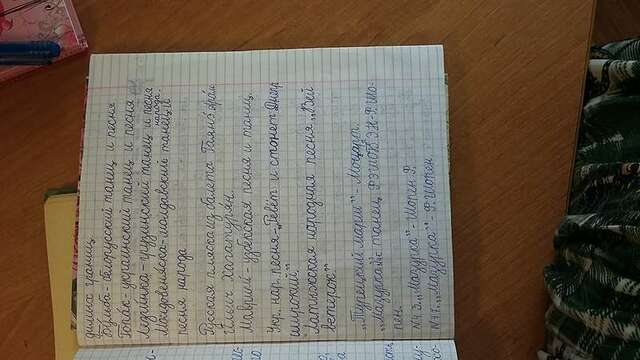 димых границ
Бульба - белорусский танец и песня
Гопак - украинский танец и песня
Лезгинка - грузинский танец и песня
народа.
Молдовеняска - молдавский танец и
песня народа
Русская пляска из балета Гаянэ Арам
Ильич Хачатурян.
Маврики - узбекская песня и танец.
Укр. нар. песня - „Ревёт и стонет Днепр
широкий"
Латыжская народная песня „Вей
ветерок!"
„Турецкий марш" - Моцарт.
„Мазурка" танец Р. Шо-
пен.
„Мазурка" - Шопен Р.
„Мазурка" - Р. Шопен.